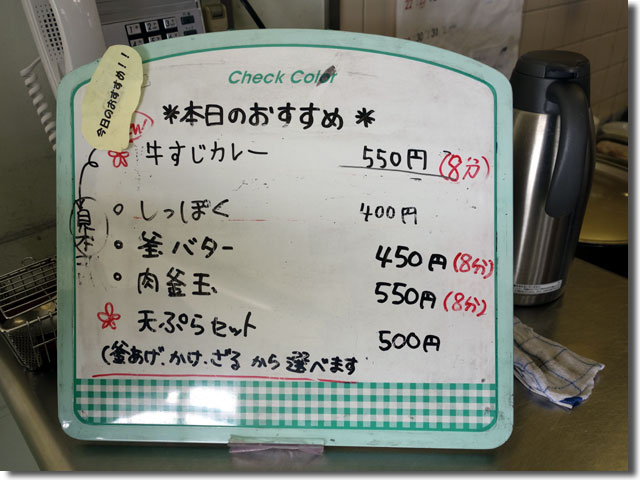 Check Color
今日のおすすめ!!
*本日のおすすめ*
牛すじカレー 550円 (8分)
しっぽく 400円
釜バター 450円 (8分)
肉釜玉 550円 (8分)
天ぷらセット 500円
(釜あげ.かけ.ざるから選べます